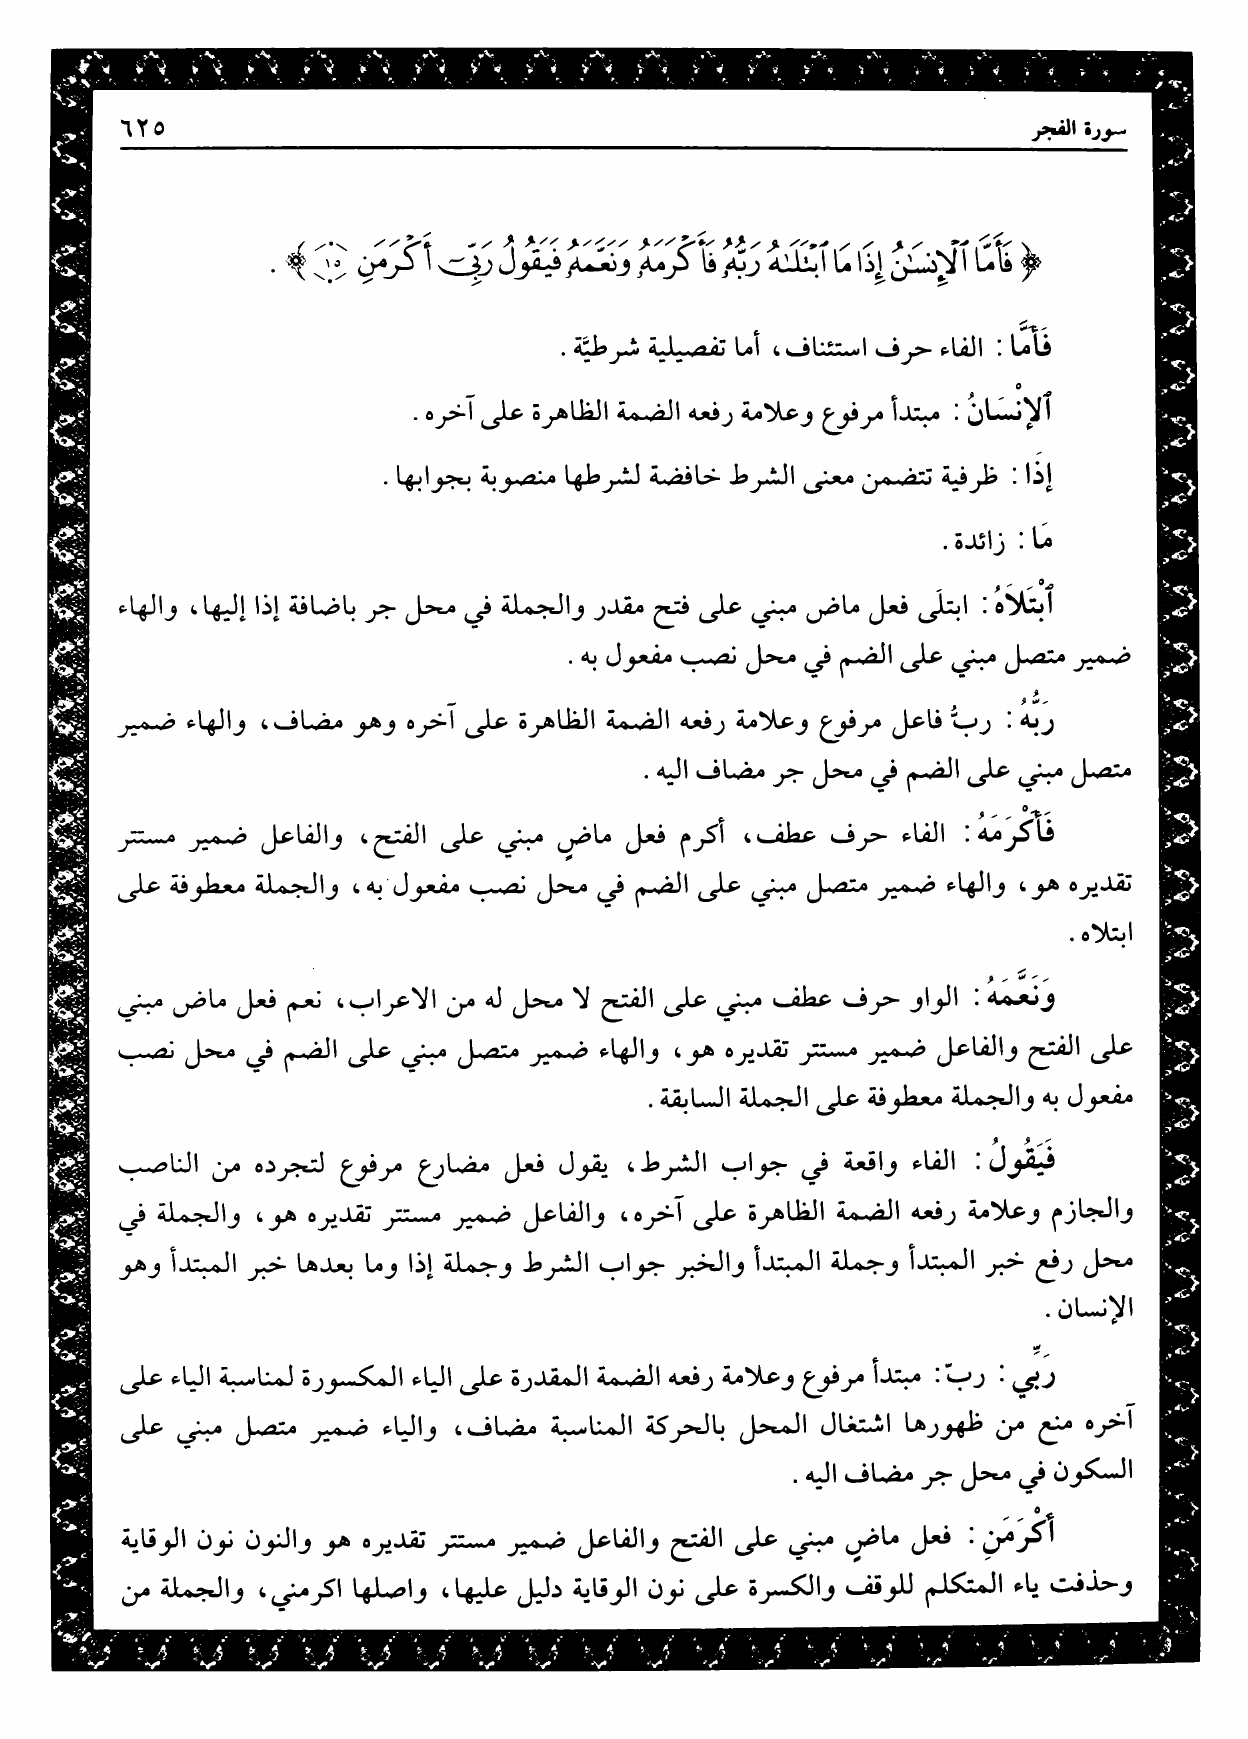 سورة الفجر
٦٢٥
﴿ فَأَمَّا ٱلْإِنسَٰنُ إِذَا مَا ٱبْتَلَىٰهُ رَبُّهُۥ فَأَكْرَمَهُۥ وَنَعَّمَهُۥ فَيَقُولُ رَبِّيٓ أَكْرَمَنِ ١٥ ﴾ .
فَأَمَّا : الفاء حرف استئناف، أما تفصيلية شرطيَّة .
ٱلإنْسَانُ : مبتدأ مرفوع وعلامة رفعه الضمة الظاهرة على آخره .
إذَا : ظرفية تتضمن معنى الشرط خافضة لشرطها منصوبة بجوابها .
مَا : زائدة .
ٱبْتَلاَهُ : ابتلَى فعل ماض مبني على فتح مقدر والجملة في محل جر باضافة إذا إليها، والهاء
ضمير متصل مبني على الضم في محل نصب مفعول به .
رَبُّهُ : ربُّ فاعل مرفوع وعلامة رفعه الضمة الظاهرة على آخره وهو مضاف، والهاء ضمير
متصل مبني على الضم في محل جر مضاف اليه .
فَأَكْرَمَهُ : الفاء حرف عطف، أكرم فعل ماضٍ مبني على الفتح، والفاعل ضمير مستتر
تقديره هو، والهاء ضمير متصل مبني على الضم في محل نصب مفعول به، والجملة معطوفة على
ابتلاه .
وَنَعَّمَهُ : الواو حرف عطف مبني على الفتح لا محل له من الاعراب، نعم فعل ماض مبني
على الفتح والفاعل ضمير مستتر تقديره هو، والهاء ضمير متصل مبني على الضم في محل نصب
مفعول به والجملة معطوفة على الجملة السابقة .
فَيَقُولُ : الفاء واقعة في جواب الشرط، يقول فعل مضارع مرفوع لتجرده من الناصب
والجازم وعلامة رفعه الضمة الظاهرة على آخره، والفاعل ضمير مستتر تقديره هو، والجملة في
محل رفع خبر المبتدأ وجملة المبتدأ والخبر جواب الشرط وجملة إذا وما بعدها خبر المبتدأ وهو
الإنسان .
رَبِّي : ربّ: مبتدأ مرفوع وعلامة رفعه الضمة المقدرة على الياء المكسورة لمناسبة الياء على
آخره منع من ظهورها اشتغال المحل بالحركة المناسبة مضاف، والياء ضمير متصل مبني على
السكون في محل جر مضاف اليه .
أَكْرَمَنِ : فعل ماضٍ مبني على الفتح والفاعل ضمير مستتر تقديره هو والنون نون الوقاية
وحذفت ياء المتكلم للوقف والكسرة على نون الوقاية دليل عليها، واصلها اكرمني، والجملة من